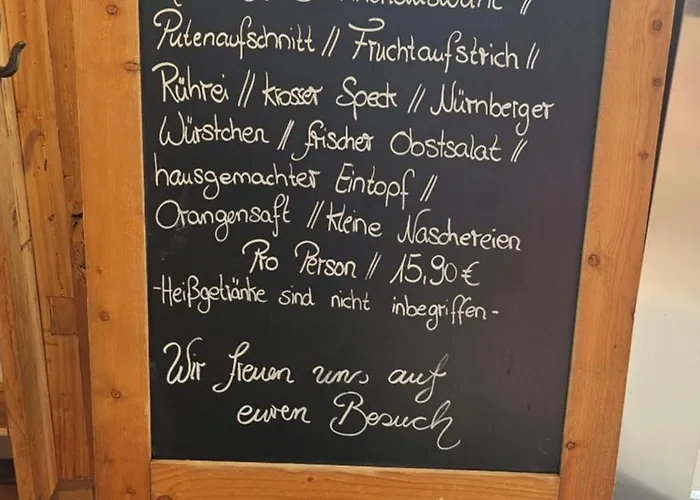 //
Putenaufschnitt // Fruchtaufstrich //
Rührei // krosser Speck // Nürnberger
Würstchen // frischer Obstsalat //
hausgemachter Eintopf //
Orangensaft // kleine Naschereien
Pro Person // 15,90 €
-Heißgetränke sind nicht inbegriffen-
Wir freuen uns auf
euren Besuch